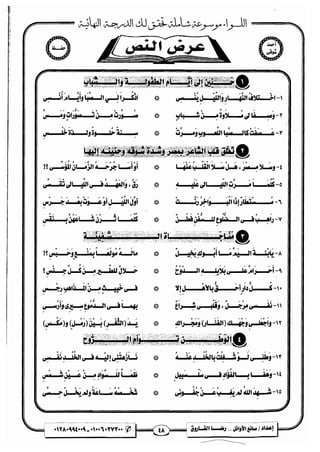 اللـواء موسوعة شاملة تحقق لك الدرجة النهائية
أحمد شوقى
عرض النص
حفظ
١ حنين إلى أيام الطفولة والشباب
١- اختلاف النهار والليل ينسى * اذكرا لى الصبا وأيام أنسى
٢- وصفا لى ملاوة من شباب * صورت من تصورات ومس
٣- عصفت كالصبا اللعوب ومرت * سنة حلوة ولذة خلس
٢ تعلق قلب الشاعر بمصر وشدة شوقه وحنينه إليها
٤- وسلا مصر، هل سلا القلب عنها * أو أسا جرحه الزمان المؤسى؟!
٥- كلما مرت الليالى عليه * رق، والعهد فى الليالى تقسى
٦- مستطار إذا البواخر رنت * أول الليل أو عوت بعد جرس
٧- راهب فى الضلوع للسفن فطن * كلما ثرن شاعهن بنقس
٣ مناجاة السفينة
٨- يا ابنة اليم ما أبوك بخيل * ماله مولعا بمنع وحبس؟!
٩- أحرام على بلابله الدوح * حلال للطير من كل جنس؟
١٠- كل دار أحق بالأهل إلا * فى خبيث من المذاهب رجس
١١- نفسى مرجل، وقلبى شراع * بهما فى الدموع سيرى وأرسى
١٢- واجعلى وجهك (الفنار) ومجراك * يد (الثغر) بين (رمل) و(مكس)
٤ الوطن توأم الروح
١٣- وطنى لو شغلت بالخلد عنه * نازعتنى إليه فى الخلد نفسى
١٤- وهفا بالفؤاد فى سلسبيل * ظمأ للسواد من عين شمس
١٥- شهد الله لم يغب عن جفونى * شخصه ساعة ولم يخل حسى
إعداد/ صانع الأوائل.. رضا الفاروق
٤٨